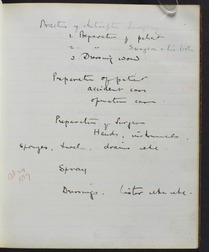 Practice of Antiseptic Surgery
1 Preparation of patient
2 " " Surgeon
3 Dressing wound
Preparation of patient
accident cases
operation cases
Preparation of Surgeon
Hands, instruments
Sponges, towels, drains etc
Spray
Dressings, Lister etc etc.